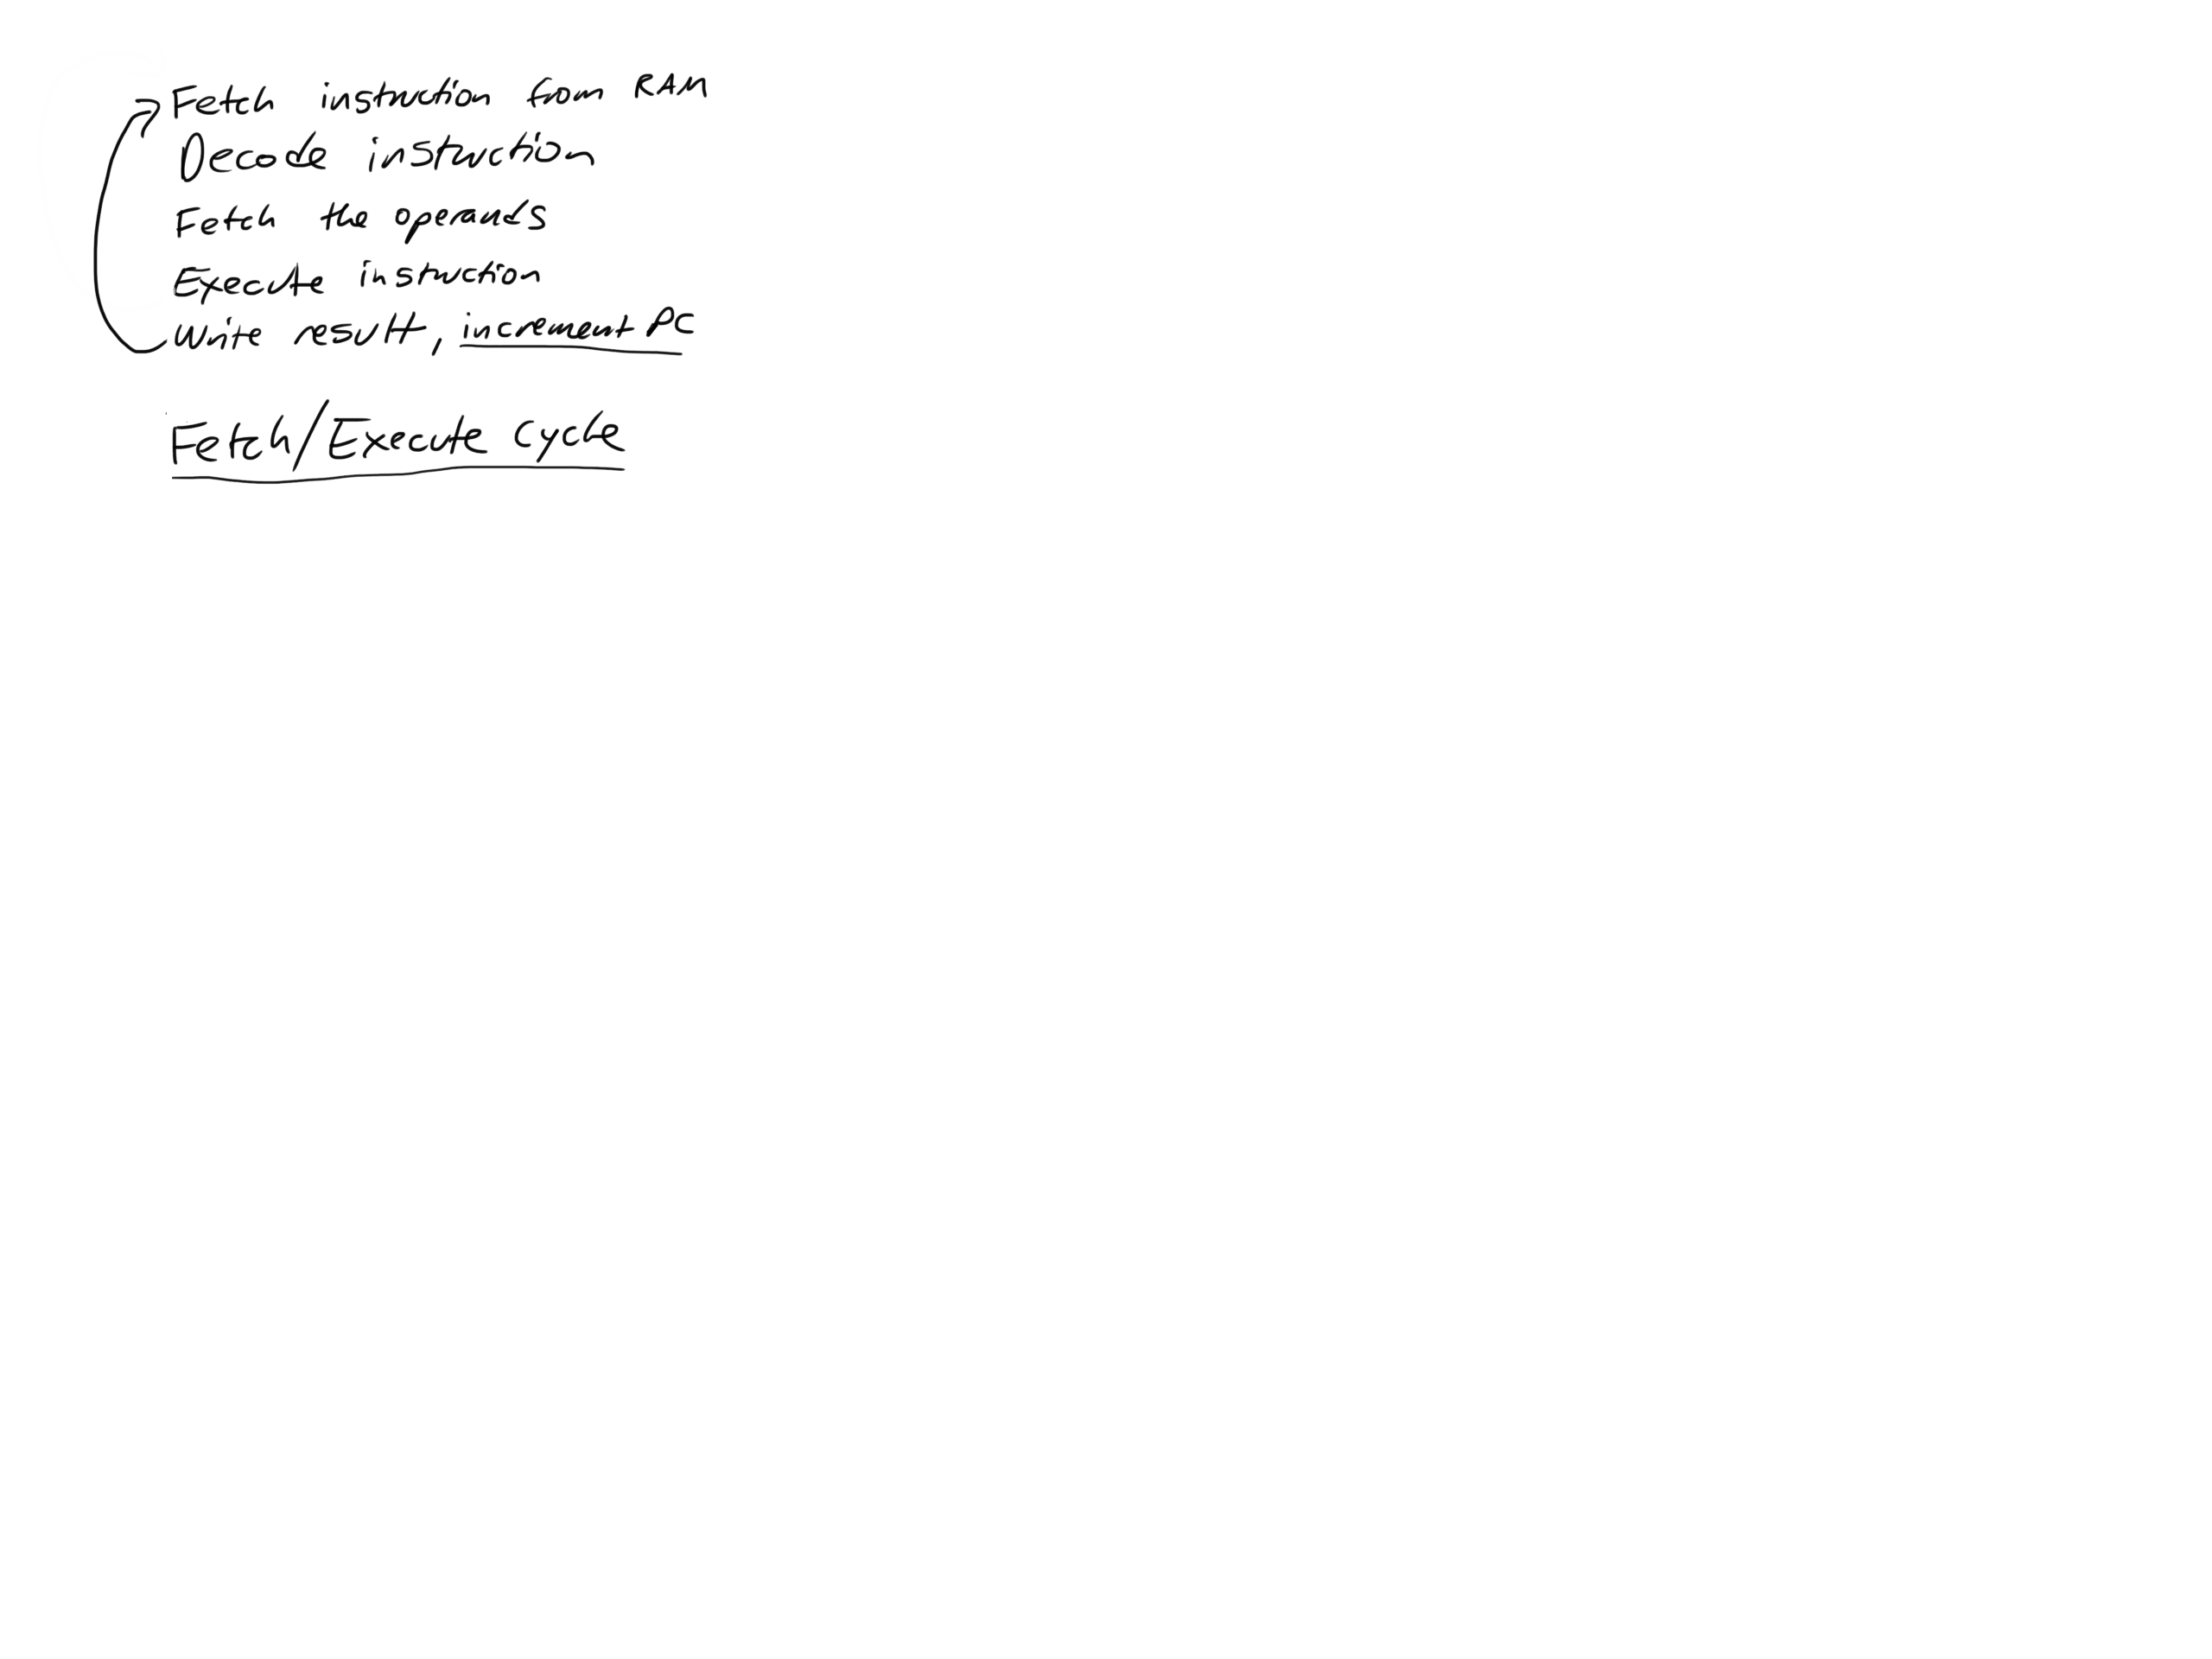 Fetch instruction from RAM
Decode instruction
Fetch the operands
Execute instruction
Write result, increment PC
Fetch/Execute cycle